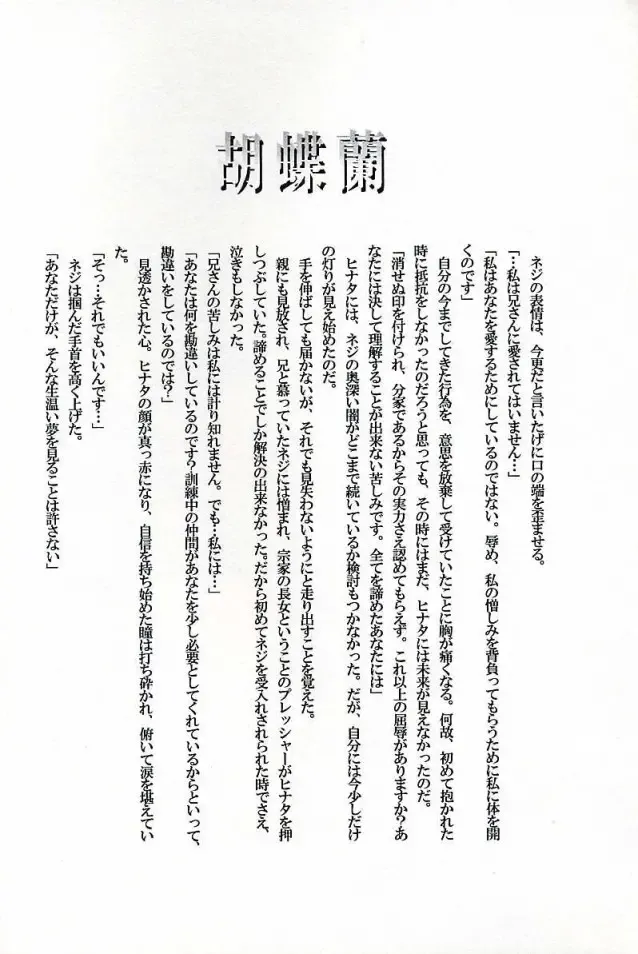 胡蝶蘭
ネジの表情は、今更だと言いたげに口の端を歪ませる。
「…私は兄さんに愛されてはいません…」
「私はあなたを愛するためにしているのではない。辱め、私の憎しみを背負ってもらうために私に体を開
くのです」
自分の今までしてきた行為を、意思を放棄して受けていたことに胸が痛くなる。何故、初めて抱かれた
時に抵抗をしなかったのだろうと思っても、その時にはまだ、ヒナタには未来が見えなかったのだ。
「消せぬ印を付けられ、分家であるからその実力さえ認めてもらえず。これ以上の屈辱がありますか？あ
なたには決して理解することが出来ない苦しみです。全てを諦めたあなたには」
ヒナタには、ネジの奥深い闇がどこまで続いているか検討もつかなかった。だが、自分には今少しだけ
の灯りが見え始めたのだ。
手を伸ばしても届かないが、それでも見失わないようにと走り出すことを覚えた。
親にも見放され、兄と慕っていたネジには憎まれ、宗家の長女ということのプレッシャーがヒナタを押
しつぶしていた。諦めることでしか解決の出来なかった。だから初めてネジを受入れさせられた時でさえ、
泣きもしなかった。
「兄さんの苦しみは私には計り知れません。でも…私には…」
「あなたは何を勘違いしているのです？訓練中の仲間があなたを少し必要としてくれているからといって、
勘違いをしているのでは？」
見透かされた心。ヒナタの顔が真っ赤になり、自信を持ち始めた瞳は打ち砕かれ、俯いて涙を堪えてい
た。
「そっ…それでもいいんです…」
ネジは掴んだ手首を高く上げた。
「あなただけが、そんな生温い夢を見ることは許さない」